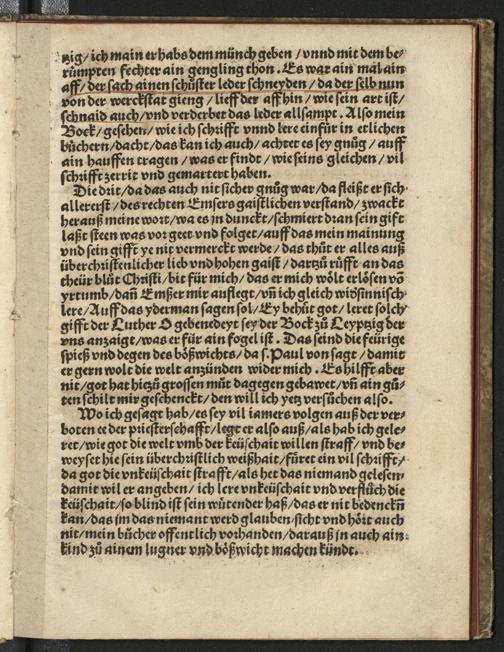 tzig/ ich main er habs dem münch geben / vnnd mit dem be⸗
rümpten fechter ain gengling thon. Es war ain mal ain
aff/ der sach ainen schůster leder schneyden/ da der selb nun
von der werckstat gieng / lieff der aff hin/ wie sein art ist/
schnaid auch/ vnd verderbet das leder allsampt. Also mein
Bock/ gesehen/ wie ich schrifft vnnd lere einfür in etlichen
büchern/ dacht/ das kan ich auch/ achtet es sey gnůg/ auff
ain hauffen tragen / was er findt/ wie seins gleichen / vil
schrifft zerrit vnd gemartert haben.
Die drit/ da das auch nit sicher gnůg war/ da fleißt er sich
allererst/ des rechten Emsers gaistlichen verstand/ zwackt
herauß meine wort/ wa es jn dunckt/ schmiert dran sein gift
laßt steen was vor geet vnd folget/ auff das mein mainung
vnd sein gifft ye nit vermerckt werde/ das thůt er alles auß
überchristenlicher lieb vnd hohen gaist/ dartzů růfft an das
theür blůt Christi/ bit für mich/ das er mich wölt erlösen võ
yrtumb/ dañ Emßer mir auflegt/ vñ ich gleich widsinnisch
lere/ Auff das yderman sagen sol/ Ey behüt got/ leret solch
gifft der Luther O gebenedeyt sey der Bock zů Leyptzig der
vns anzaigt/ was er für ain fogel ist. Das seind die feürige
spieß vnd degen des bößwichts/ da s. Paul von sagt/ damit
er gern wolt die welt anzünden wider mich. Es hilfft aber
nit/ got hat hiezů grossen můt dagegen gebawet/ vñ ain gů⸗
ten schilt mir geschenckt/ den will ich yetz versůchen also.
Wo ich gesagt hab/ es sey vil iamers volgen auß der ver⸗
boten ee der priesterschafft/ legt er also auß/ als hab ich gele⸗
ret/ wie got die welt vmb der keüschait willen straff/ vnd be⸗
weyset hie sein überchristlich weißhait/ füret ein vil schrifft/
da got die vnkeüschait strafft/ als het das niemand gelesen
damit wil er angeben/ ich lere vnkeüschait vnd verflůch die
keüschait/ so blind ist sein wütender haß/ das er nit bedenckñ
kan/ das jm das niemant werd glauben/ sicht vnd hört auch
nit/ mein bücher offentlich vorhanden/ darauß jn auch ain
kind zů ainem lugner vnd bößwicht machen kündt.